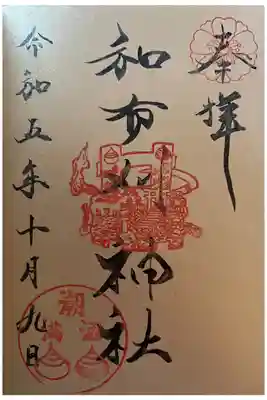 奉拝
和布刈神社
令和五年十月九日
潮